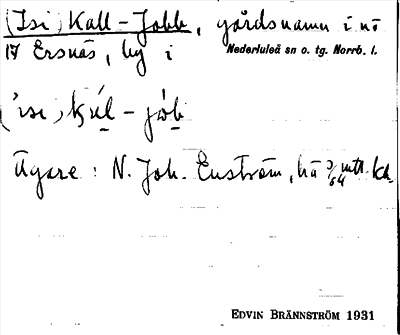 (Isi) Kall-Jobb, gårdsnamn i nö
17 Ersnäs, by i Nederluleå sn o. tg. Norrb. l.
Ägare: N. Joh. Enström, 3/64 mtl.
EDVIN BRÄNNSTRÖM 1931